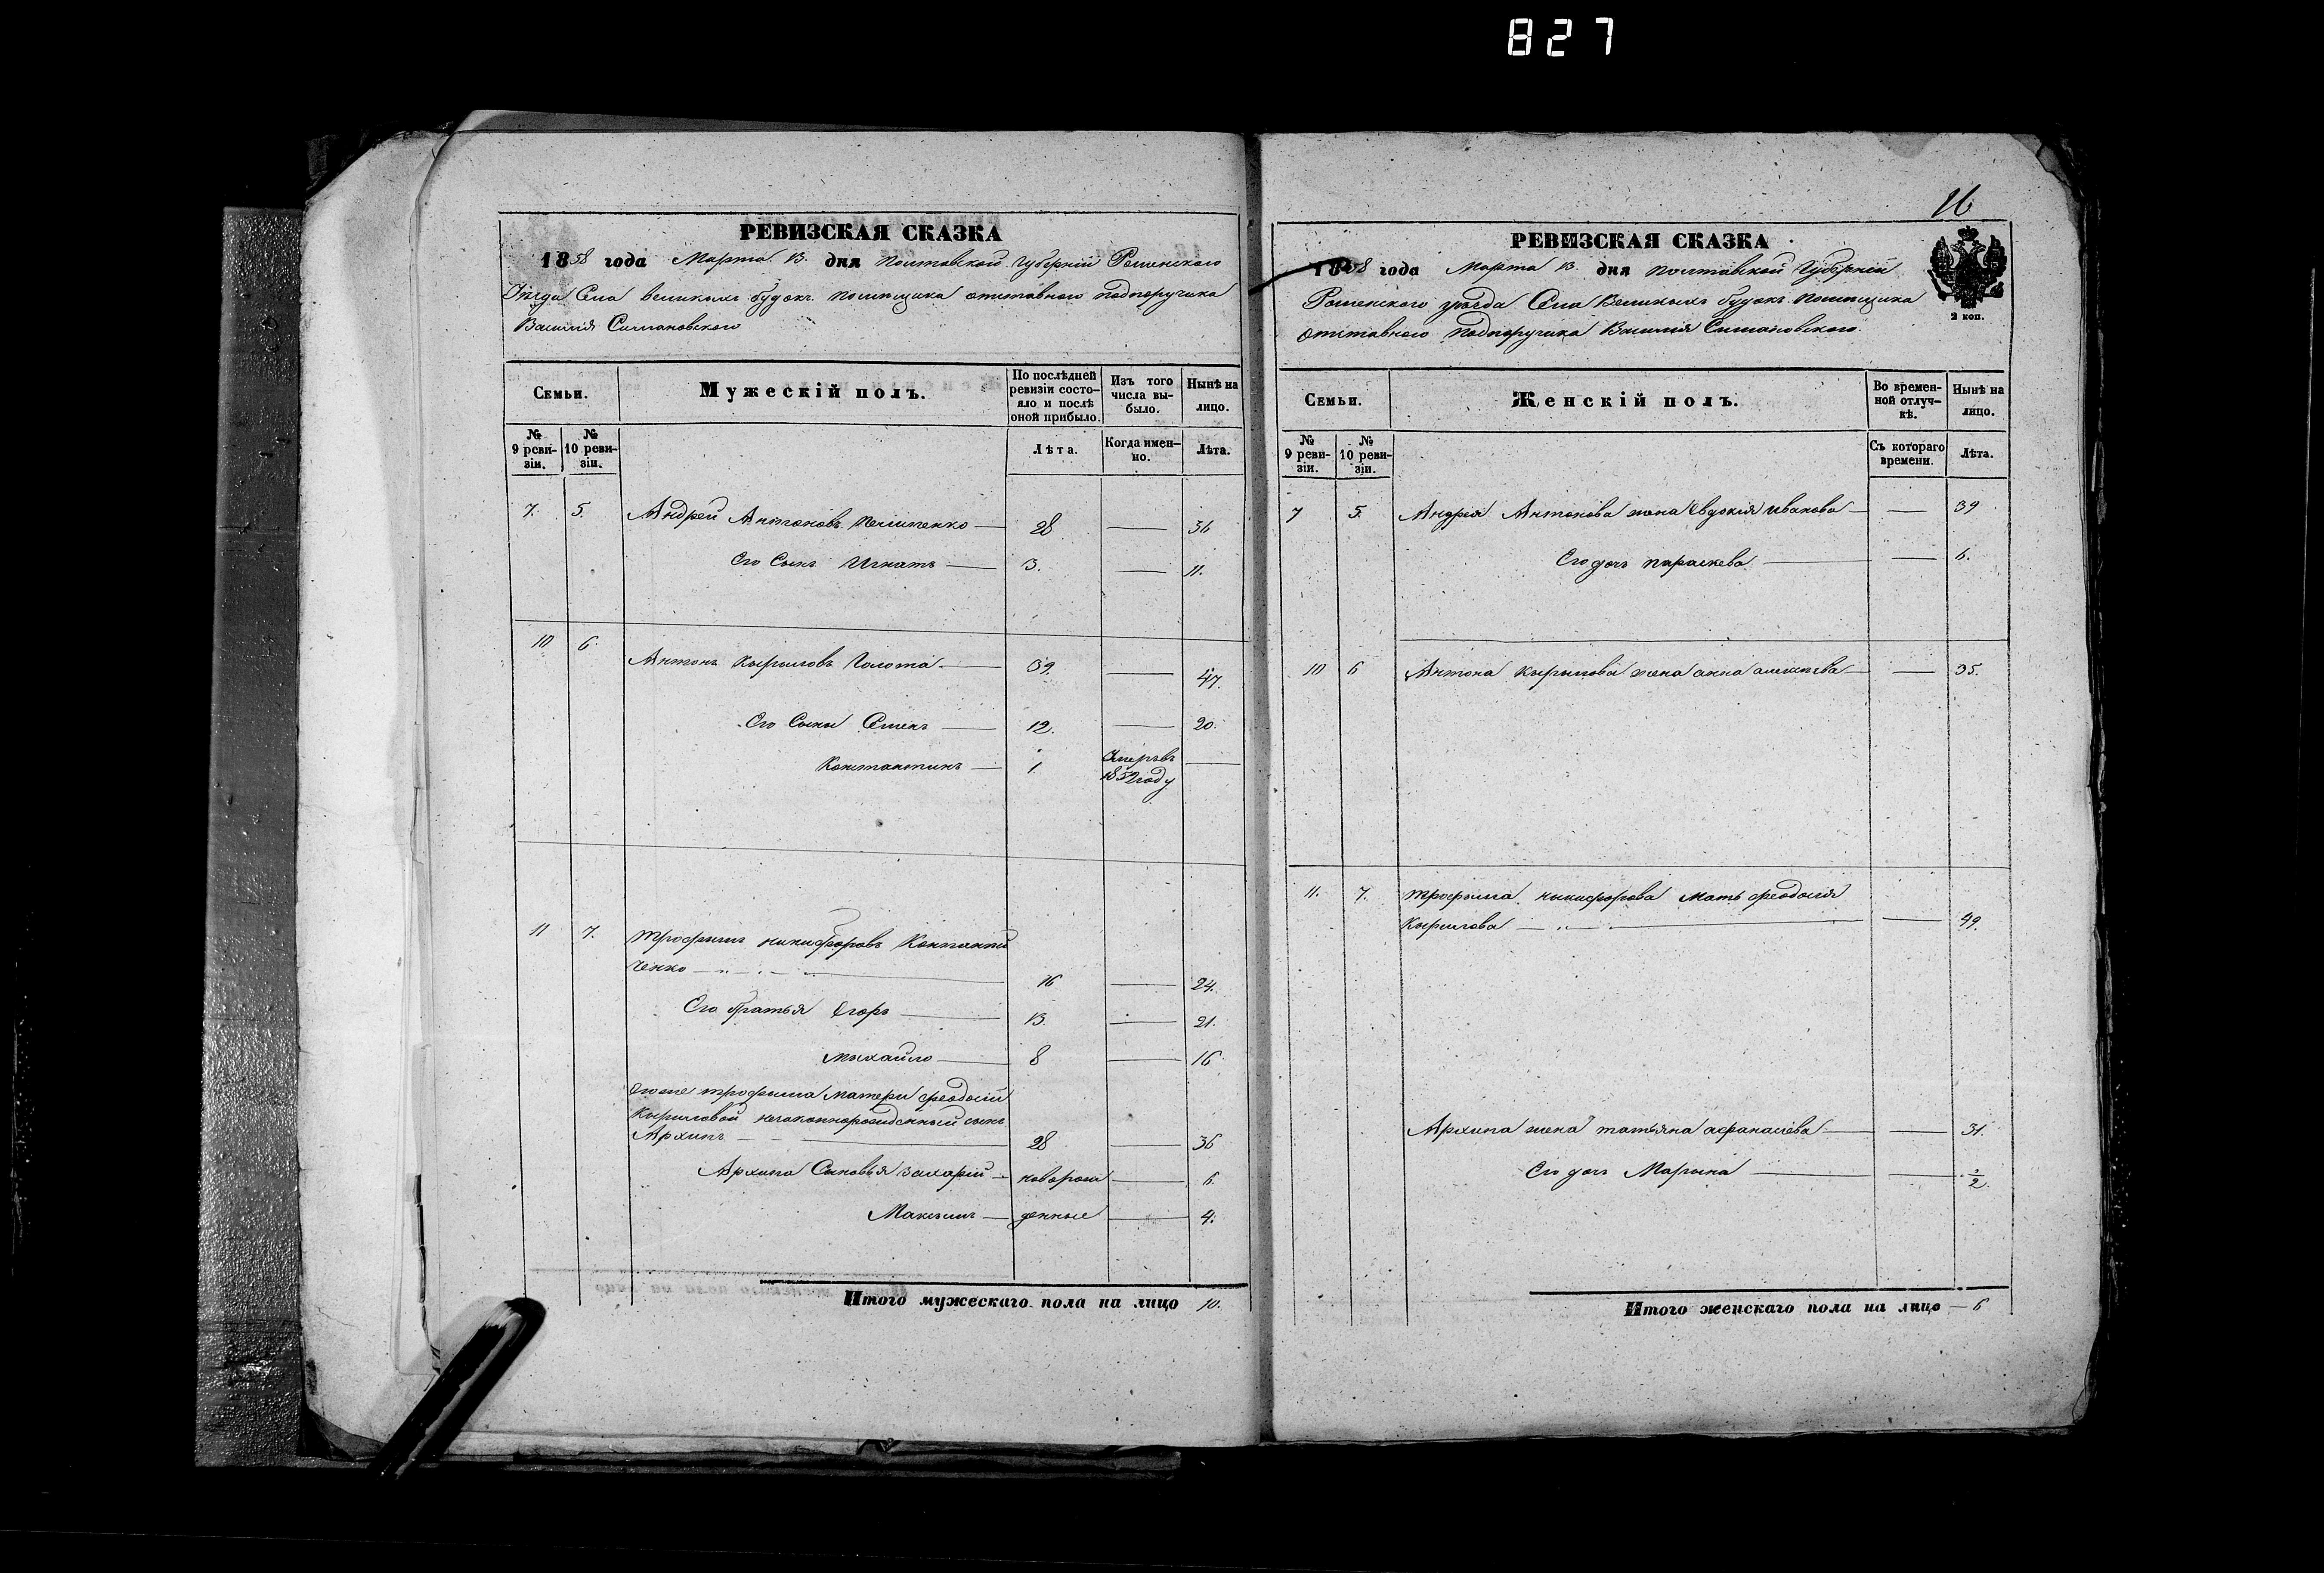 827
РЕВИЗСКАЯ СКАЗКА
1858 года Марта 13 дня Полтавской Губернии Роменского
Уезда Села великихъ будокъ помещика отставного подпоручика
Василия Симановского
Семьи.
Мужескій полъ.
По послѣдней ревизіи состо-яло и послѣ оной прибыло.
Изъ того числа вы-было.
Нынѣ на лицо.
№ 9 реви-зіи.
№ 10 реви-зіи.
Лѣта.
Когда имен-но.
Лѣта.
7. 5. Андрей Антоновъ — 28 — 36
Его Сынъ Игнатъ — 3. — 11.
10 6. Антонъ Кыриловъ Голота — 39. — 47.
Его Сыны Семенъ — 12. — 20.
Константинъ — 1. Умеръ въ 1852 году —
11 7. Трофымъ никифоровъ
ченко — 16 — 24.
Его братья Егоръ — 13. — 21.
Мыхайло — 8 — 16
Его же трофыма матери феодосіи
Кыриловой незаконнорожденный сынъ
Архипъ — 28 — 36
Архипа Сыновья захарій — новорож — 6.
Максымъ — денные — 4.
Итого мужескаго пола на лицо 10.
16
РЕВИЗСКАЯ СКАЗКА
1858 года Марта 13 дня Полтавской Губерніи
Роменского уезда Села Великыхъ будокъ помещика
отставного подпоручика Василия Симановского.
2 коп.
Семьи.
Женскій полъ.
Во времен-ной отлуч-кѣ.
Нынѣ на лицо.
№ 9 реви-зіи.
№ 10 реви-зіи.
Съ котораго времени.
Лѣта.
7 5. Андрея Антонова жена Евдокия иванова — — 39
Его дочь параскева — — 6.
10 6 Антона Кырылова жена анна алексѣева — — 35.
11. 7. Трофыма никифорова мать феодосия
Кырилова — — 49.
Архипа жена татьяна афанасіева — — 31.
Его дочь Марына — — 1/2.
Итого женскаго пола на лицо — 6